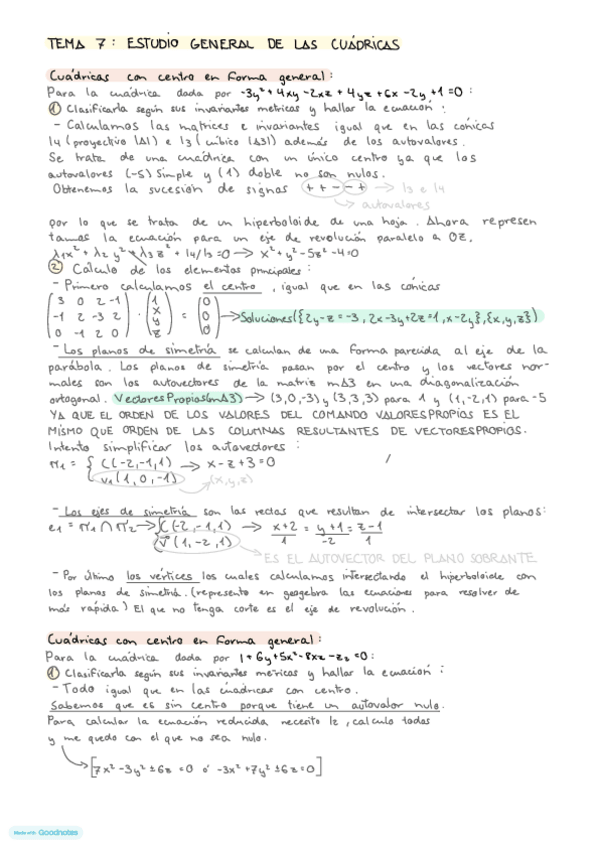 TEMA 7: ESTUDIO GENERAL DE LAS CUÁDRICAS
Cuádricas con centro en forma general:
Para la cuádrica dada por -3y²+4xy-2xz+4yz+6x-2y+1=0:
① Clasificarla según sus invariantes metricas y hallar la ecuación:
- Calculamos las matrices e invariantes igual que en las cónicas
I4 (proyectivo |Δ|) e I3 (cúbico |Δ3|) además de los autovalores.
Se trata de una cuádrica con un único centro ya que los
autovalores (-5) Simple y (1) doble no son nulos.
Obtenemos la sucesión de signos ++--+ → I3 e I4
→ autovalores
por lo que se trata de un hiperboloide de una hoja. Ahora represen
tamos la ecuación para un eje de revolución paralelo a OZ.
λ1x² + λ2y² + λ3z² + I4/I3 = 0 → x² + y² - 5z² - 4 = 0
② Cálculo de los elementos principales:
- Primero calculamos el centro, igual que en las cónicas
(3 0 2 -1) · (1) = (0) → Soluciones({2y-z=-3, 2x-3y+2z=1, x-2y},{x,y,z})
(-1 2 -3 2) (x) (0)
(0 -1 2 0) (y) (0)
(z)
- Los planos de simetría se calculan de una forma parecida al eje de la
parábola. Los planos de simetría pasan por el centro y los vectores nor-
males son los autovectores de la matriz mΔ3 en una diagonalización
ortogonal. VectoresPropios(mΔ3) → (3,0,-3) y (3,3,3) para 1 y (1,-2,1) para -5
YA QUE EL ORDEN DE LOS VALORES DEL COMANDO VALORESPROPIOS ES EL
MISMO QUE ORDEN DE LAS COLUMNAS RESULTANTES DE VECTORESPROPIOS.
Intento simplificar los autovectores:
π1 = { C(-2,-1,1) → x-z+3=0
v1(1,0,-1) → (x,y,z)
- Los ejes de simetría son las rectas que resultan de intersectar los planos:
e1 = π1 ∩ π2 → { C(-2,-1,1) → x+2/1 = y+1/-2 = z-1/1
v(1,-2,1)
→ ES EL AUTOVECTOR DEL PLANO SOBRANTE
- Por último los vértices los cuales calculamos intersectando el hiperboloide con
los planos de simetría. (represento en geogebra las ecuaciones para resolver de
más rápida) El que no tenga corte es el eje de revolución.
Cuádricas con centro en forma general:
Para la cuádrica dada por 1+6y+5x²-8xz-z²=0:
① Clasificarla según sus invariantes metricas y hallar la ecuación:
- Todo igual que en las cuádricas con centro.
Sabemos que es sin centro porque tiene un autovalor nulo.
Para calcular la ecuación reducida necesito I2, calculo todos
y me quedo con el que no sea nulo.
→ [7x²-3y² ± 6z = 0 ó -3x²+7y² ± 6z = 0]
Made with Goodnotes